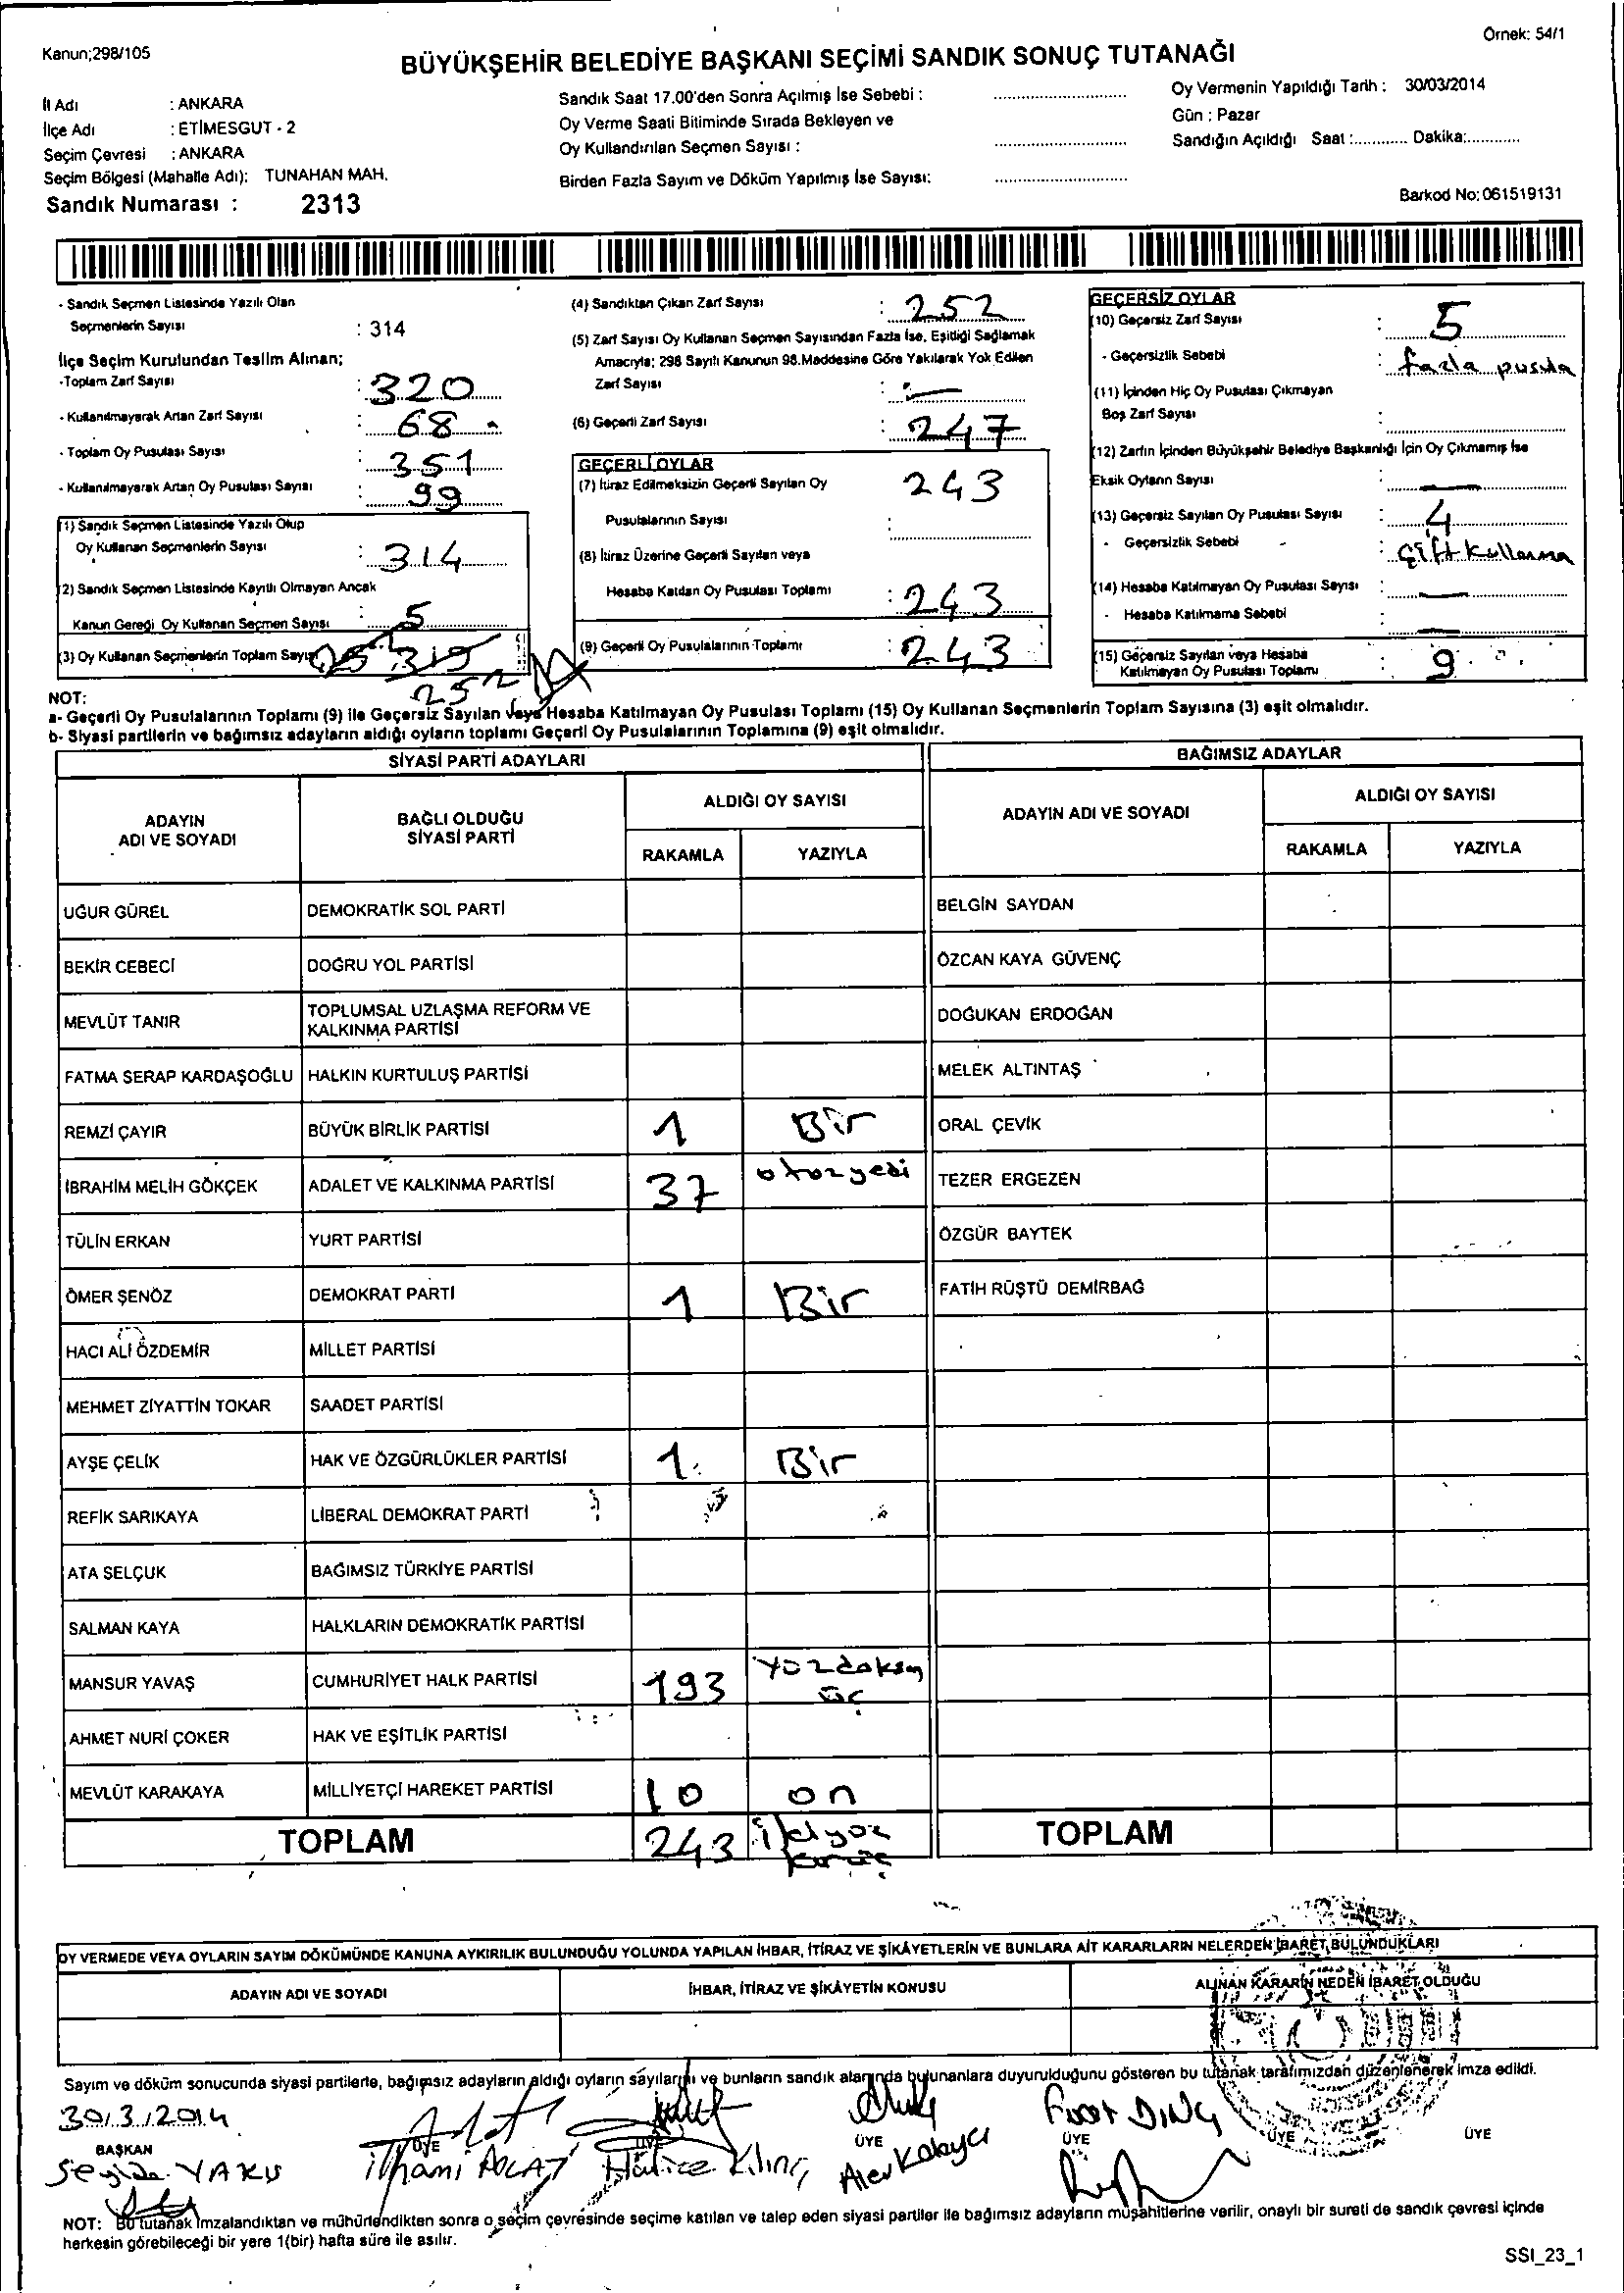 Kanun;298/105
Örnek: 54/1
BÜYÜKŞEHİR BELEDİYE BAŞKANI SEÇİMİ SANDIK SONUÇ TUTANAĞI
İl Adı : ANKARA
İlçe Adı : ETİMESGUT - 2
Seçim Çevresi : ANKARA
Seçim Bölgesi (Mahalle Adı): TUNAHAN MAH.
Sandık Numarası : 2313
Sandık Saat 17.00'den Sonra Açılmış İse Sebebi :
Oy Verme Saati Bitiminde Sırada Bekleyen ve
Oy Kullandırılan Seçmen Sayısı :
Birden Fazla Sayım ve Döküm Yapılmış İse Sayısı:
Oy Vermenin Yapıldığı Tarih : 30/03/2014
Gün : Pazar
Sandığın Açıldığı Saat :............ Dakika:............
Barkod No: 061519131
- Sandık Seçmen Listesinde Yazılı Olan
Seçmenlerin Sayısı : 314
İlçe Seçim Kurulundan Teslim Alınan;
-Toplam Zarf Sayısı : 320
- Kullanılmayarak Artan Zarf Sayısı : 68
- Toplam Oy Pusulası Sayısı : 351
- Kullanılmayarak Artan Oy Pusulası Sayısı : 99
(1) Sandık Seçmen Listesinde Yazılı Olup
Oy Kullanan Seçmenlerin Sayısı : 314
(2) Sandık Seçmen Listesinde Kayıtlı Olmayan Ancak
Kanun Gereği Oy Kullanan Seçmen Sayısı : 5
(3) Oy Kullanan Seçmenlerin Toplam Sayısı 319
252
(4) Sandıktan Çıkan Zarf Sayısı : 252
(5) Zarf Sayısı Oy Kullanan Seçmen Sayısından Fazla İse, Eşitliği Sağlamak
Amacıyla; 298 Sayılı Kanunun 98.Maddesine Göre Yakılarak Yok Edilen
Zarf Sayısı : —
(6) Geçerli Zarf Sayısı : 247
GEÇERLİ OYLAR
(7) İtiraz Edilmeksizin Geçerli Sayılan Oy 243
Pusulalarının Sayısı :
(8) İtiraz Üzerine Geçerli Sayılan veya
Hesaba Katılan Oy Pusulası Toplamı : 243
(9) Geçerli Oy Pusulalarının Toplamı : 243
GEÇERSİZ OYLAR
(10) Geçersiz Zarf Sayısı : 5
- Geçersizlik Sebebi : fazla pusula
(11) İçinden Hiç Oy Pusulası Çıkmayan
Boş Zarf Sayısı :
(12) Zarfın İçinden Büyükşehir Belediye Başkanlığı İçin Oy Çıkmamış İse
Eksik Oyların Sayısı : —
(13) Geçersiz Sayılan Oy Pusulası Sayısı : 4
- Geçersizlik Sebebi : Çift kullanma
(14) Hesaba Katılmayan Oy Pusulası Sayısı : —
- Hesaba Katılmama Sebebi : —
(15) Geçersiz Sayılan veya Hesaba
Katılmayan Oy Pusulası Toplamı : 9
NOT:
a- Geçerli Oy Pusulalarının Toplamı (9) ile Geçersiz Sayılan veya Hesaba Katılmayan Oy Pusulası Toplamı (15) Oy Kullanan Seçmenlerin Toplam Sayısına (3) eşit olmalıdır.
b- Siyasi partilerin ve bağımsız adayların aldığı oyların toplamı Geçerli Oy Pusulalarının Toplamına (9) eşit olmalıdır.
SİYASİ PARTİ ADAYLARI
ADAYIN
ADI VE SOYADI
BAĞLI OLDUĞU
SİYASİ PARTİ
ALDIĞI OY SAYISI
RAKAMLA YAZIYLA
UĞUR GÜREL DEMOKRATİK SOL PARTİ
BEKİR CEBECİ DOĞRU YOL PARTİSİ
MEVLÜT TANIR TOPLUMSAL UZLAŞMA REFORM VE
KALKINMA PARTİSİ
FATMA SERAP KARDAŞOĞLU HALKIN KURTULUŞ PARTİSİ
REMZİ ÇAYIR BÜYÜK BİRLİK PARTİSİ 1 Bir
İBRAHİM MELİH GÖKÇEK ADALET VE KALKINMA PARTİSİ 37 otuzyedi
TÜLİN ERKAN YURT PARTİSİ
ÖMER ŞENÖZ DEMOKRAT PARTİ 1 Bir
HACI ALİ ÖZDEMİR MİLLET PARTİSİ
MEHMET ZİYATTİN TOKAR SAADET PARTİSİ
AYŞE ÇELİK HAK VE ÖZGÜRLÜKLER PARTİSİ 1 Bir
REFİK SARIKAYA LİBERAL DEMOKRAT PARTİ
ATA SELÇUK BAĞIMSIZ TÜRKİYE PARTİSİ
SALMAN KAYA HALKLARIN DEMOKRATİK PARTİSİ
MANSUR YAVAŞ CUMHURİYET HALK PARTİSİ 193 Yüzdoksan
üç
AHMET NURİ ÇOKER HAK VE EŞİTLİK PARTİSİ
MEVLÜT KARAKAYA MİLLİYETÇİ HAREKET PARTİSİ 10 on
TOPLAM 243 ikiyüz
kırküç
BAĞIMSIZ ADAYLAR
ADAYIN ADI VE SOYADI
ALDIĞI OY SAYISI
RAKAMLA YAZIYLA
BELGİN SAYDAN
ÖZCAN KAYA GÜVENÇ
DOĞUKAN ERDOĞAN
MELEK ALTINTAŞ
ORAL ÇEVİK
TEZER ERGEZEN
ÖZGÜR BAYTEK
FATİH RÜŞTÜ DEMİRBAĞ
TOPLAM
OY VERMEDE VEYA OYLARIN SAYIM DÖKÜMÜNDE KANUNA AYKIRILIK BULUNDUĞU YOLUNDA YAPILAN İHBAR, İTİRAZ VE ŞİKÂYETLERİN VE BUNLARA AİT KARARLARIN NELERDEN İBARET BULUNDUKLARI
ADAYIN ADI VE SOYADI
İHBAR, İTİRAZ VE ŞİKÂYETİN KONUSU
ALINAN KARARIN NEDEN İBARET OLDUĞU
Sayım ve döküm sonucunda siyasi partilerle, bağımsız adayların aldığı oyların sayılarını ve bunların sandık alanında bulunanlara duyurulduğunu gösteren bu tutanak tarafımızdan düzenlenerek imza edildi.
30/3/2014
BAŞKAN ÜYE ÜYE ÜYE ÜYE ÜYE ÜYE
İlhami POLAT Hatice Kılınç Alev Kalaycı Fırat DINÇ
NOT: Bu tutanak imzalandıktan ve mühürlendikten sonra o seçim çevresinde seçime katılan ve talep eden siyasi partiler ile bağımsız adayların müşahitlerine verilir, onaylı bir sureti de sandık çevresi içinde
herkesin görebileceği bir yere 1(bir) hafta süre ile asılır.
SSI_23_1